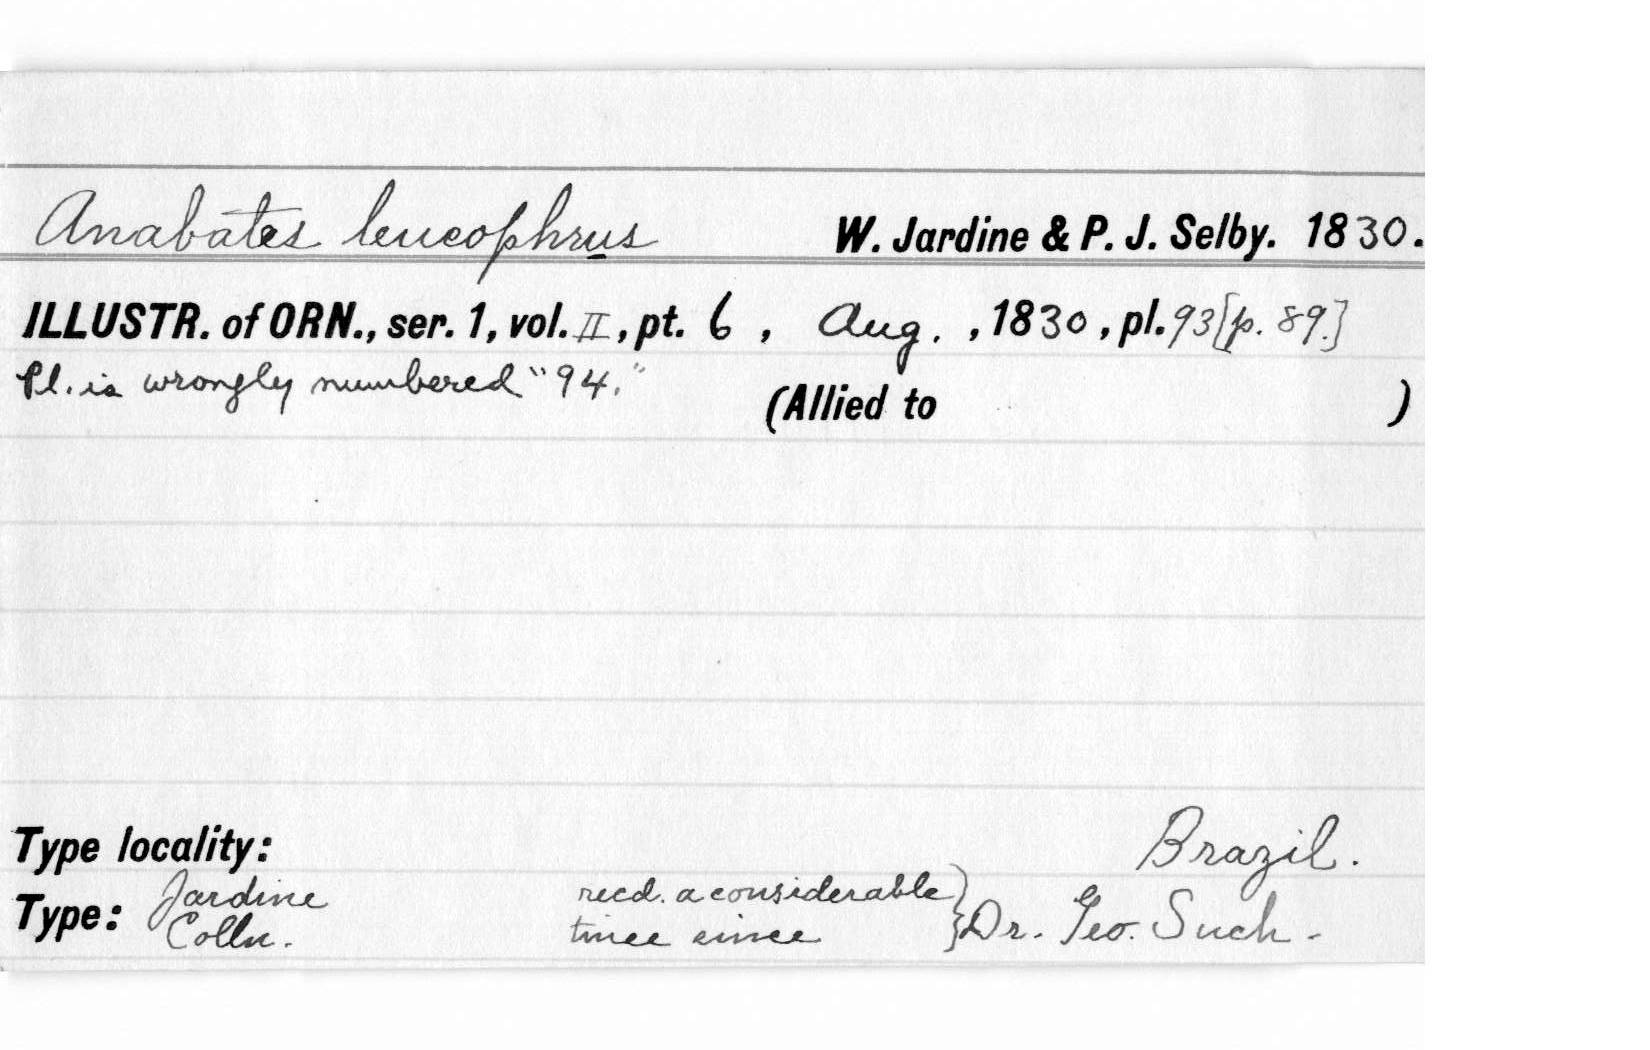 Anabates leucophrus W. Jardine & P. J. Selby. 1830.
ILLUSTR. of ORN., ser. 1, vol. II, pt. 6, Aug., 1830, pl. 93 [p. 89.]
Pl. is wrongly numbered "94."
(Allied to )
Type locality: Brazil.
Type: Jardine Colln. recd. a considerable time since } Dr. Geo. Such.